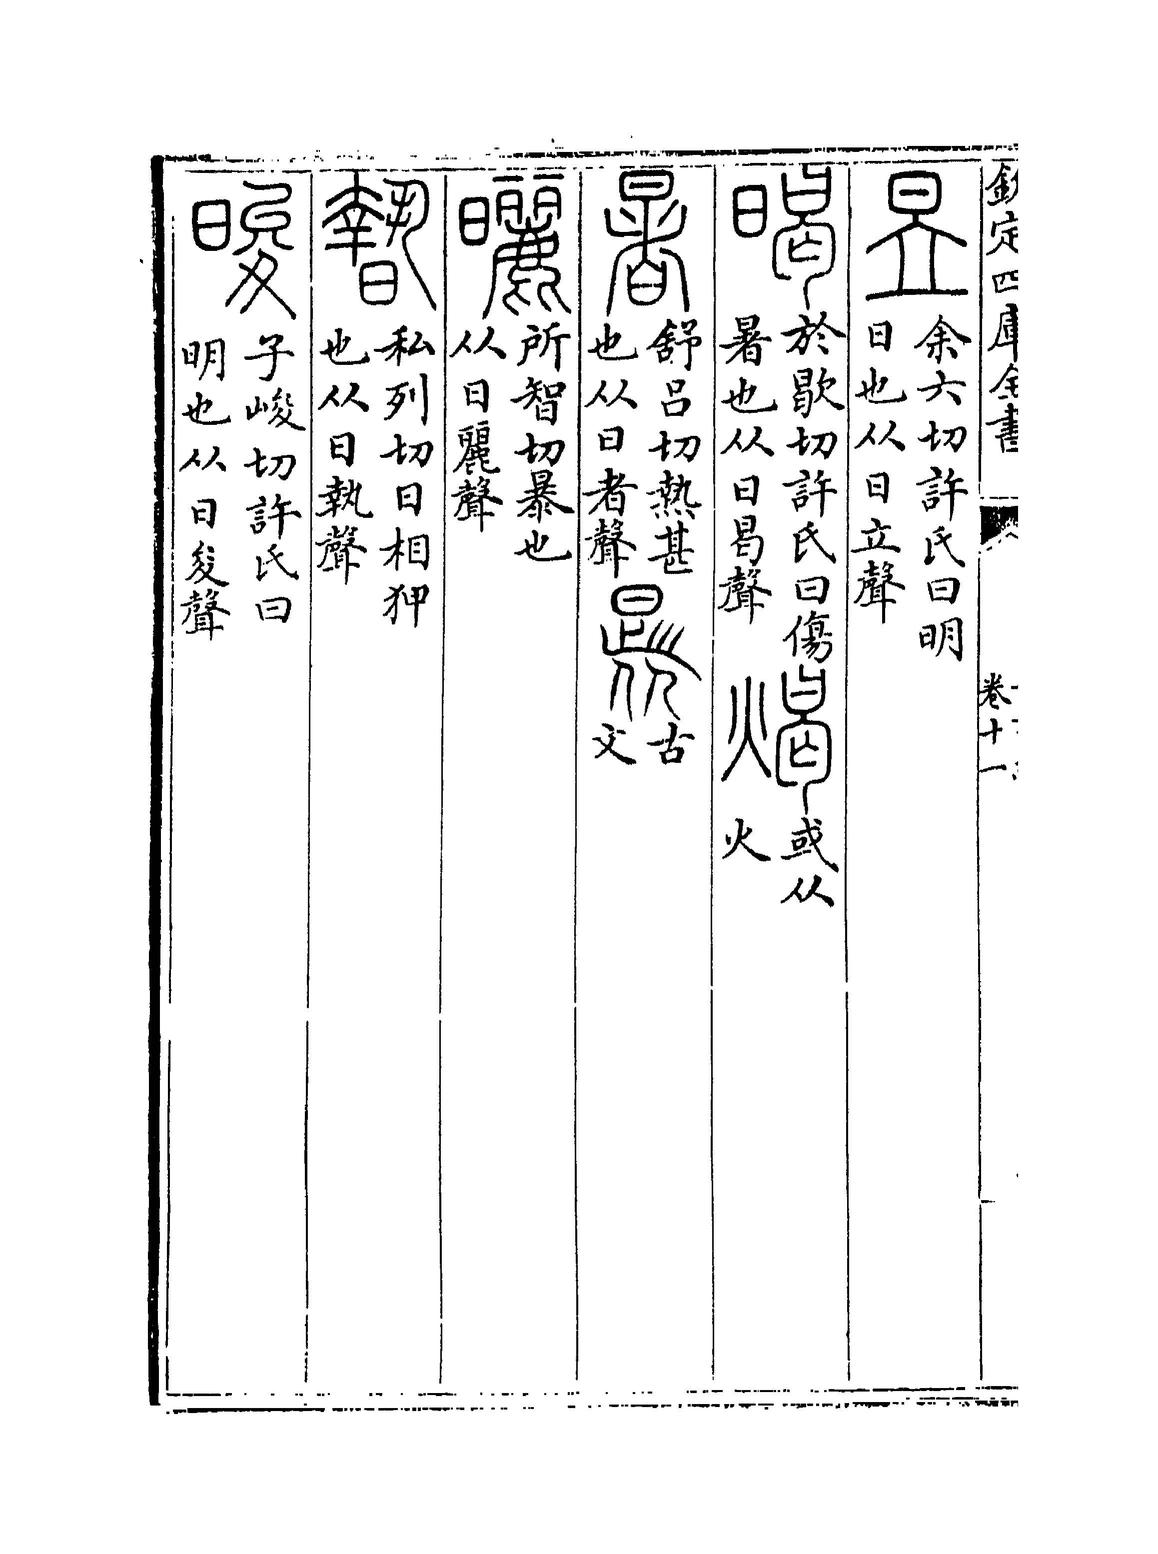 欽定四庫全書
卷十一
昱 余六切許氏曰明
日也从日立聲
暍 於歇切許氏曰傷
暑也从日曷聲 㬞 或从
火
暑 舒呂切熱甚
也从日者聲 古
文
曬 所智切暴也
从日麗聲
暬 私列切日相狎
也从日執聲
晙 子峻切許氏曰
明也从日夋聲